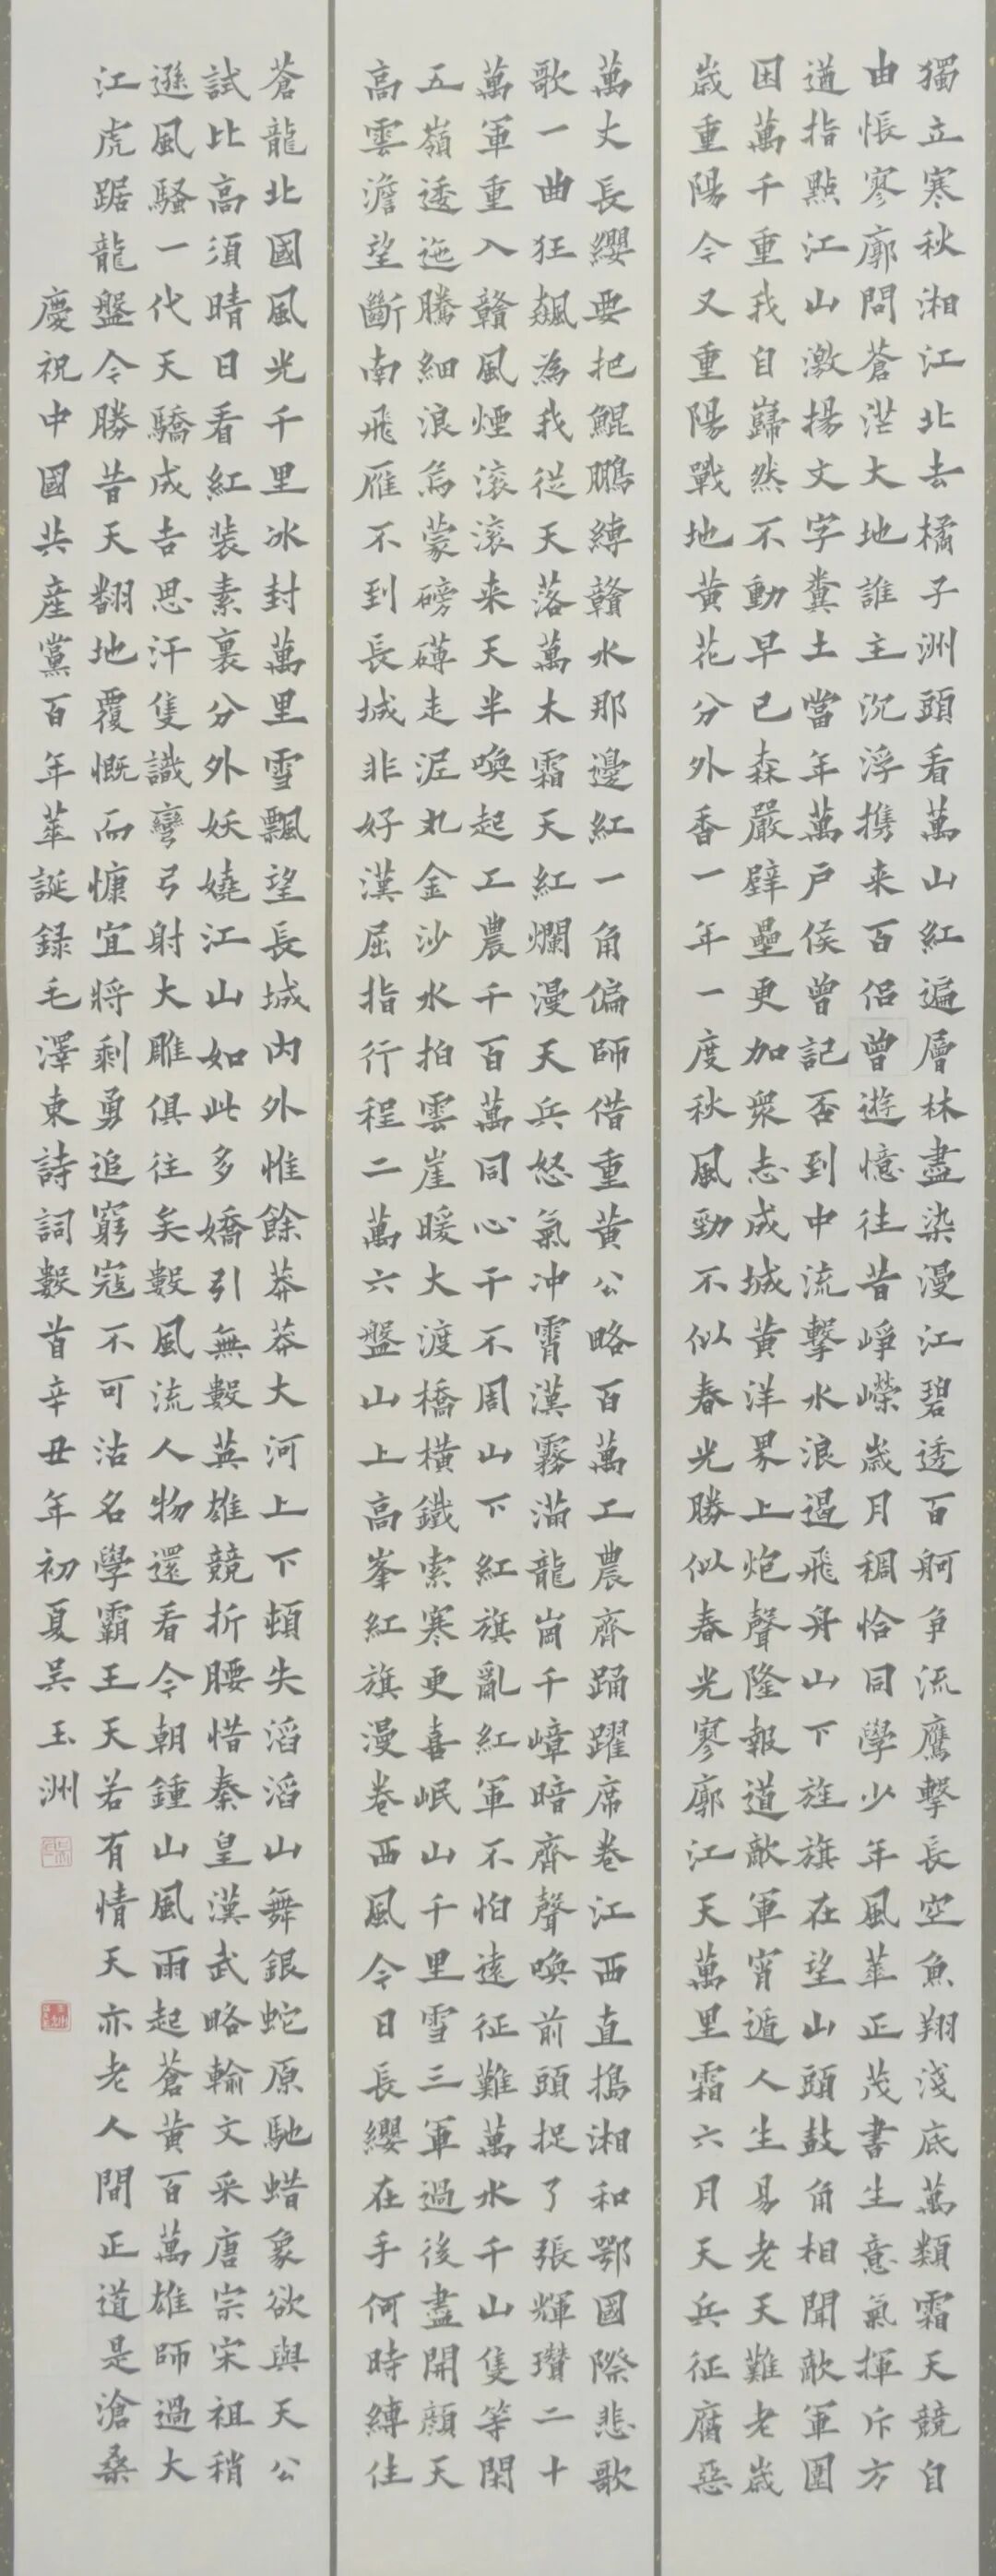 獨立寒秋湘江北去橘子洲頭看萬山紅遍層林盡染漫江碧透百舸争流鷹擊長空魚翔淺底萬類霜天競自
由悵寥廓問蒼茫大地誰主沉浮携来百侣曾遊憶往昔崢嶸歲月稠恰同學少年風華正茂書生意氣揮斥方
遒指點江山激揚文字糞土當年萬户侯曾記否到中流擊水浪遏飛舟山下旌旗在望山頭鼓角相聞敵軍圍
困萬千重我自巋然不動早已森嚴壁壘更加衆志成城黄洋界上炮聲隆報道敵軍宵遁人生易老天難老歲
歲重陽今又重陽戰地黄花分外香一年一度秋風勁不似春光勝似春光寥廓江天萬里霜六月天兵征腐惡
萬丈長纓要把鯤鵬縛贛水那邊紅一角偏師借重黄公略百萬工農齊踊躍席卷江西直搗湘和鄂國際悲歌
歌一曲狂飆為我從天落萬木霜天紅爛漫天兵怒氣冲霄漢霧滿龍崗千嶂暗齊聲喚前頭捉了張輝瓚二十
萬軍重入贛風煙滾滾来天半喚起工農千百萬同心干不周山下紅旗亂紅軍不怕遠征難萬水千山隻等閑
五嶺逶迤騰細浪烏蒙磅礴走泥丸金沙水拍雲崖暖大渡橋橫鐵索寒更喜岷山千里雪三軍過後盡開顔天
高雲澹望斷南飛雁不到長城非好漢屈指行程二萬六盤山上高峯紅旗漫卷西風今日長纓在手何時縛住
蒼龍北國風光千里冰封萬里雪飄望長城内外惟餘莽莽大河上下頓失滔滔山舞銀蛇原馳蜡象欲與天公
試比高須晴日看紅裝素裹分外妖嬈江山如此多嬌引無數英雄競折腰惜秦皇漢武略輸文采唐宗宋祖稍
遜風騷一代天驕成吉思汗隻識彎弓射大雕俱往矣數風流人物還看今朝鍾山風雨起蒼黄百萬雄師過大
江虎踞龍盤今勝昔天翻地覆慨而慷宜將剩勇追窮寇不可沽名學霸王天若有情天亦老人間正道是滄桑
慶祝中國共產黨百年華誕録毛澤東詩詞數首辛丑年初夏吴玉洲